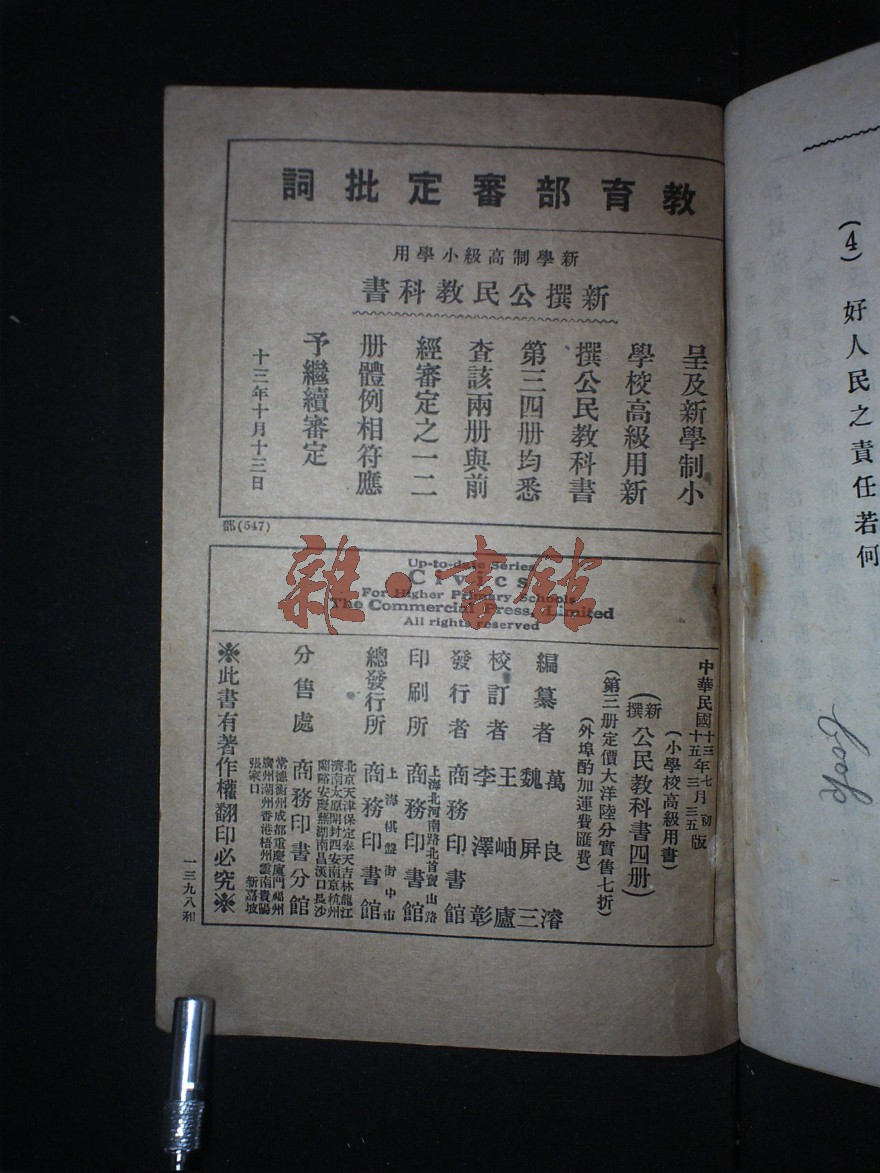 教育部審定批詞
新學制高級小學用
新撰公民教科書
呈及新學制小
學校高級用新
撰公民教科書
第三四册均悉
查該兩册與前
經審定之一二
册體例相符應
予繼續審定
十三年十月十三日
部(547)
Up-to-date Series
Civics
For Higher Primary Schools
The Commercial Press, Limited
All rights reserved
雜·書館
中華民國十三年七月初版
十五年三月三五版
(小學校高級用書)
(新撰公民教科書四册)
(第三册定價大洋陸分實售七折)
(外埠酌加運費匯費)
編纂者 萬良濬
魏屏三
校訂者 王岫廬
李澤彰
發行者 商務印書館
印刷所 上海北河南路北首寶山路
商務印書館
總發行所 上海棋盤街中市
商務印書館
分售處 商務印書分館
北京天津保定奉天吉林龍江
濟南太原開封西安南京杭州
蘭谿安慶蕪湖南昌漢口長沙
常德衡州成都重慶廈門福州
廣州潮州香港梧州雲南貴陽
張家口 新嘉坡
※此書有著作權翻印必究※
一三九八和
(4) 好人民之責任若何
book